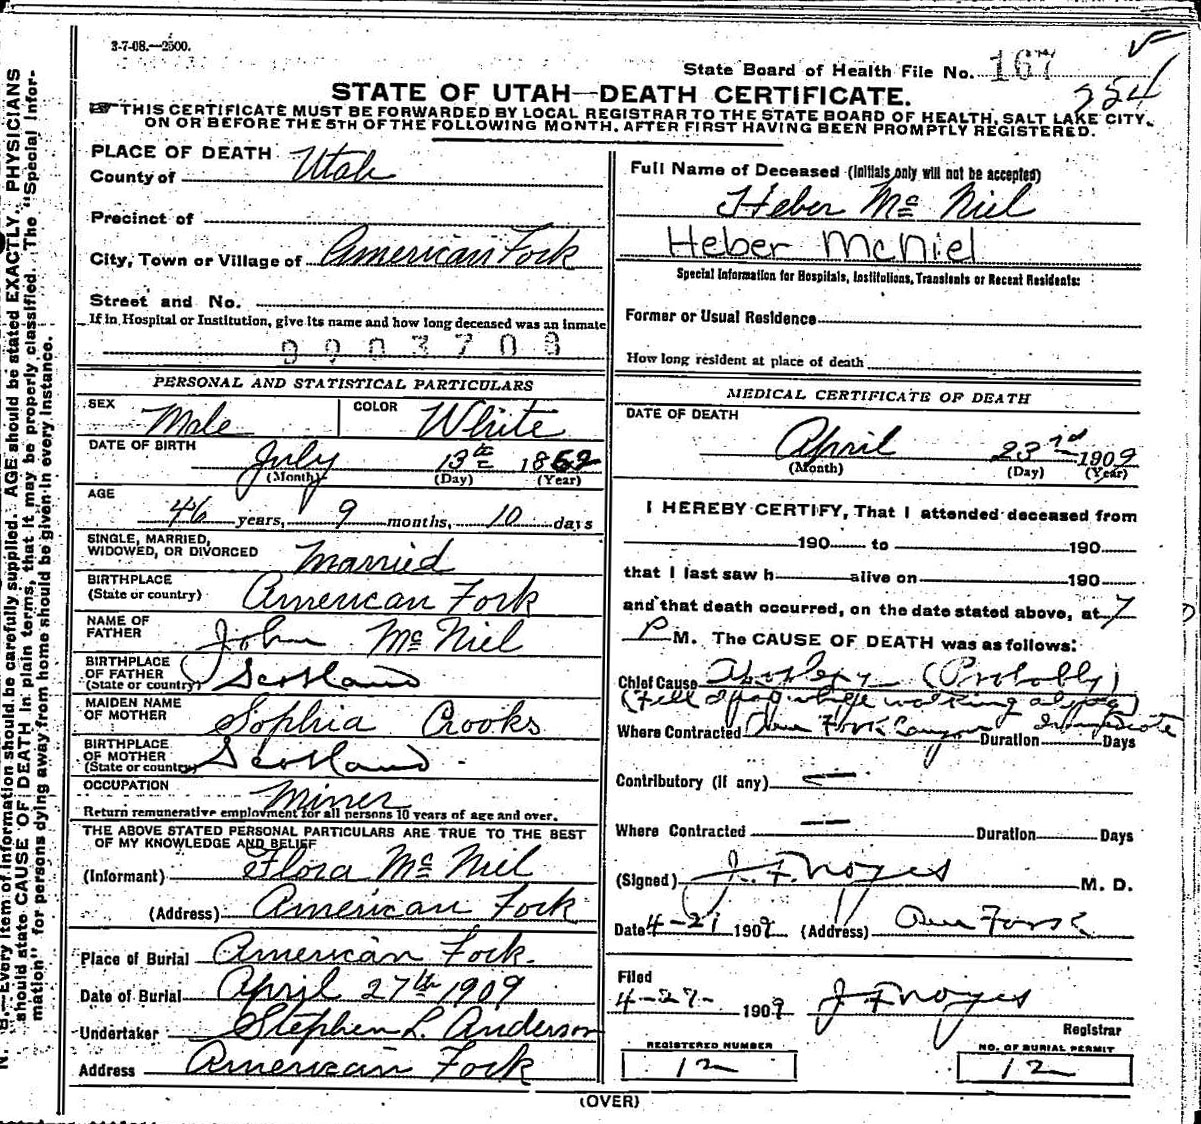 3-7-08.—2500.
State Board of Health File No. 167
224
STATE OF UTAH—DEATH CERTIFICATE.
THIS CERTIFICATE MUST BE FORWARDED BY LOCAL REGISTRAR TO THE STATE BOARD OF HEALTH, SALT LAKE CITY,
ON OR BEFORE THE 5TH OF THE FOLLOWING MONTH, AFTER FIRST HAVING BEEN PROMPTLY REGISTERED.
PLACE OF DEATH
County of Utah
Precinct of
City, Town or Village of American Fork
Street and No.
If in Hospital or Institution, give its name and how long deceased was an inmate
PERSONAL AND STATISTICAL PARTICULARS
SEX Male COLOR White
DATE OF BIRTH
July 13th 1862
(Month) (Day) (Year)
AGE
46 years, 9 months, 10 days
SINGLE, MARRIED,
WIDOWED, OR DIVORCED Married
BIRTHPLACE
(State or country) American Fork
NAME OF
FATHER John Mc Niel
BIRTHPLACE
OF FATHER
(State or country) Scotland
MAIDEN NAME
OF MOTHER Sophia Crooks
BIRTHPLACE
OF MOTHER
(State or country) Scotland
OCCUPATION Miner
Return remunerative employment for all persons 10 years of age and over.
THE ABOVE STATED PERSONAL PARTICULARS ARE TRUE TO THE BEST
OF MY KNOWLEDGE AND BELIEF
(Informant) Flora Mc Niel
(Address) American Fork
Place of Burial American Fork.
Date of Burial April 27th 1909
Undertaker Stephen L. Anderson
Address American Fork
Full Name of Deceased (Initials only will not be accepted)
Heber Mc Niel
Heber McNiel
Special Information for Hospitals, Institutions, Transients or Recent Residents:
Former or Usual Residence
How long resident at place of death
MEDICAL CERTIFICATE OF DEATH
DATE OF DEATH
April 23rd 1909
(Month) (Day) (Year)
I HEREBY CERTIFY, That I attended deceased from
190 to 190
that I last saw h alive on 190
and that death occurred, on the date stated above, at 7
P M. The CAUSE OF DEATH was as follows:
Chief Cause Apoplexy (Probably)
(Fell dead while walking along)
Where Contracted Am Fork Canyon Duration Immediate Days
Contributory (if any) —
Where Contracted — Duration Days
(Signed) J. F. Noyes M. D.
Date 4-27 1909 (Address) Am Fork
Filed
4-27- 1909 J F Noyes
Registrar
REGISTERED NUMBER
12
NO. OF BURIAL PERMIT
12
(OVER)
N. B.—Every item of information should be carefully supplied. AGE should be stated EXACTLY. PHYSICIANS
should state CAUSE OF DEATH in plain terms, that it may be properly classified. The "Special Infor-
mation" for persons dying away from home should be given in every instance.